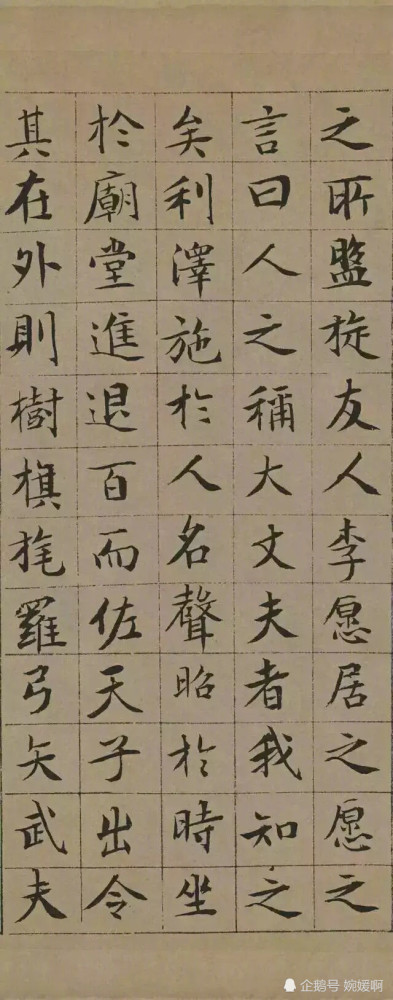 之所盤旋友人李愿居之愿之
言曰人之稱大丈夫者我知之
矣利澤施於人名聲昭於時坐
於廟堂進退百而佐天子出令
其在外則樹旗旄羅弓矢武夫
企鹅号 婉媛啊